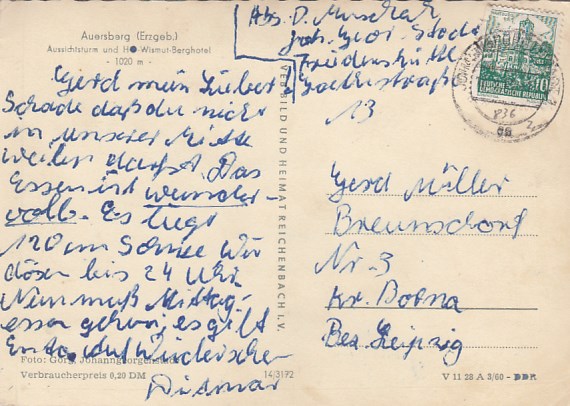 Auersberg (Erzgeb.)
Aussichtsturm und HO-Wismut-Berghotel
- 1020 m -
Abs. D.
Joh. Georg. Stadt
Friedens
straße
13
DEUTSCHE
DEMOKRATISCHE REPUBLIK
10
Gerd mein Lieber
Schade daß du nicht
in unserer Mitte
weilen darfst. Das
Essen ist wunder-
voll. Es liegt
120 cm Schnee Wir
dösen bis 24 Uhr
Nun muß Mittag-
essen gehen, es gibt
Ente.
Dietmar
Foto: Görg, Johanngeorgenstadt
Verbraucherpreis 0,20 DM
14/3172
VERBILD UND HEIMAT REICHENBACH I. V.
Gerd Müller
Breunsdorf
Nr. 3
Kr. Borna
Bez. Leipzig
V 11 28 A 3/60 - DDR